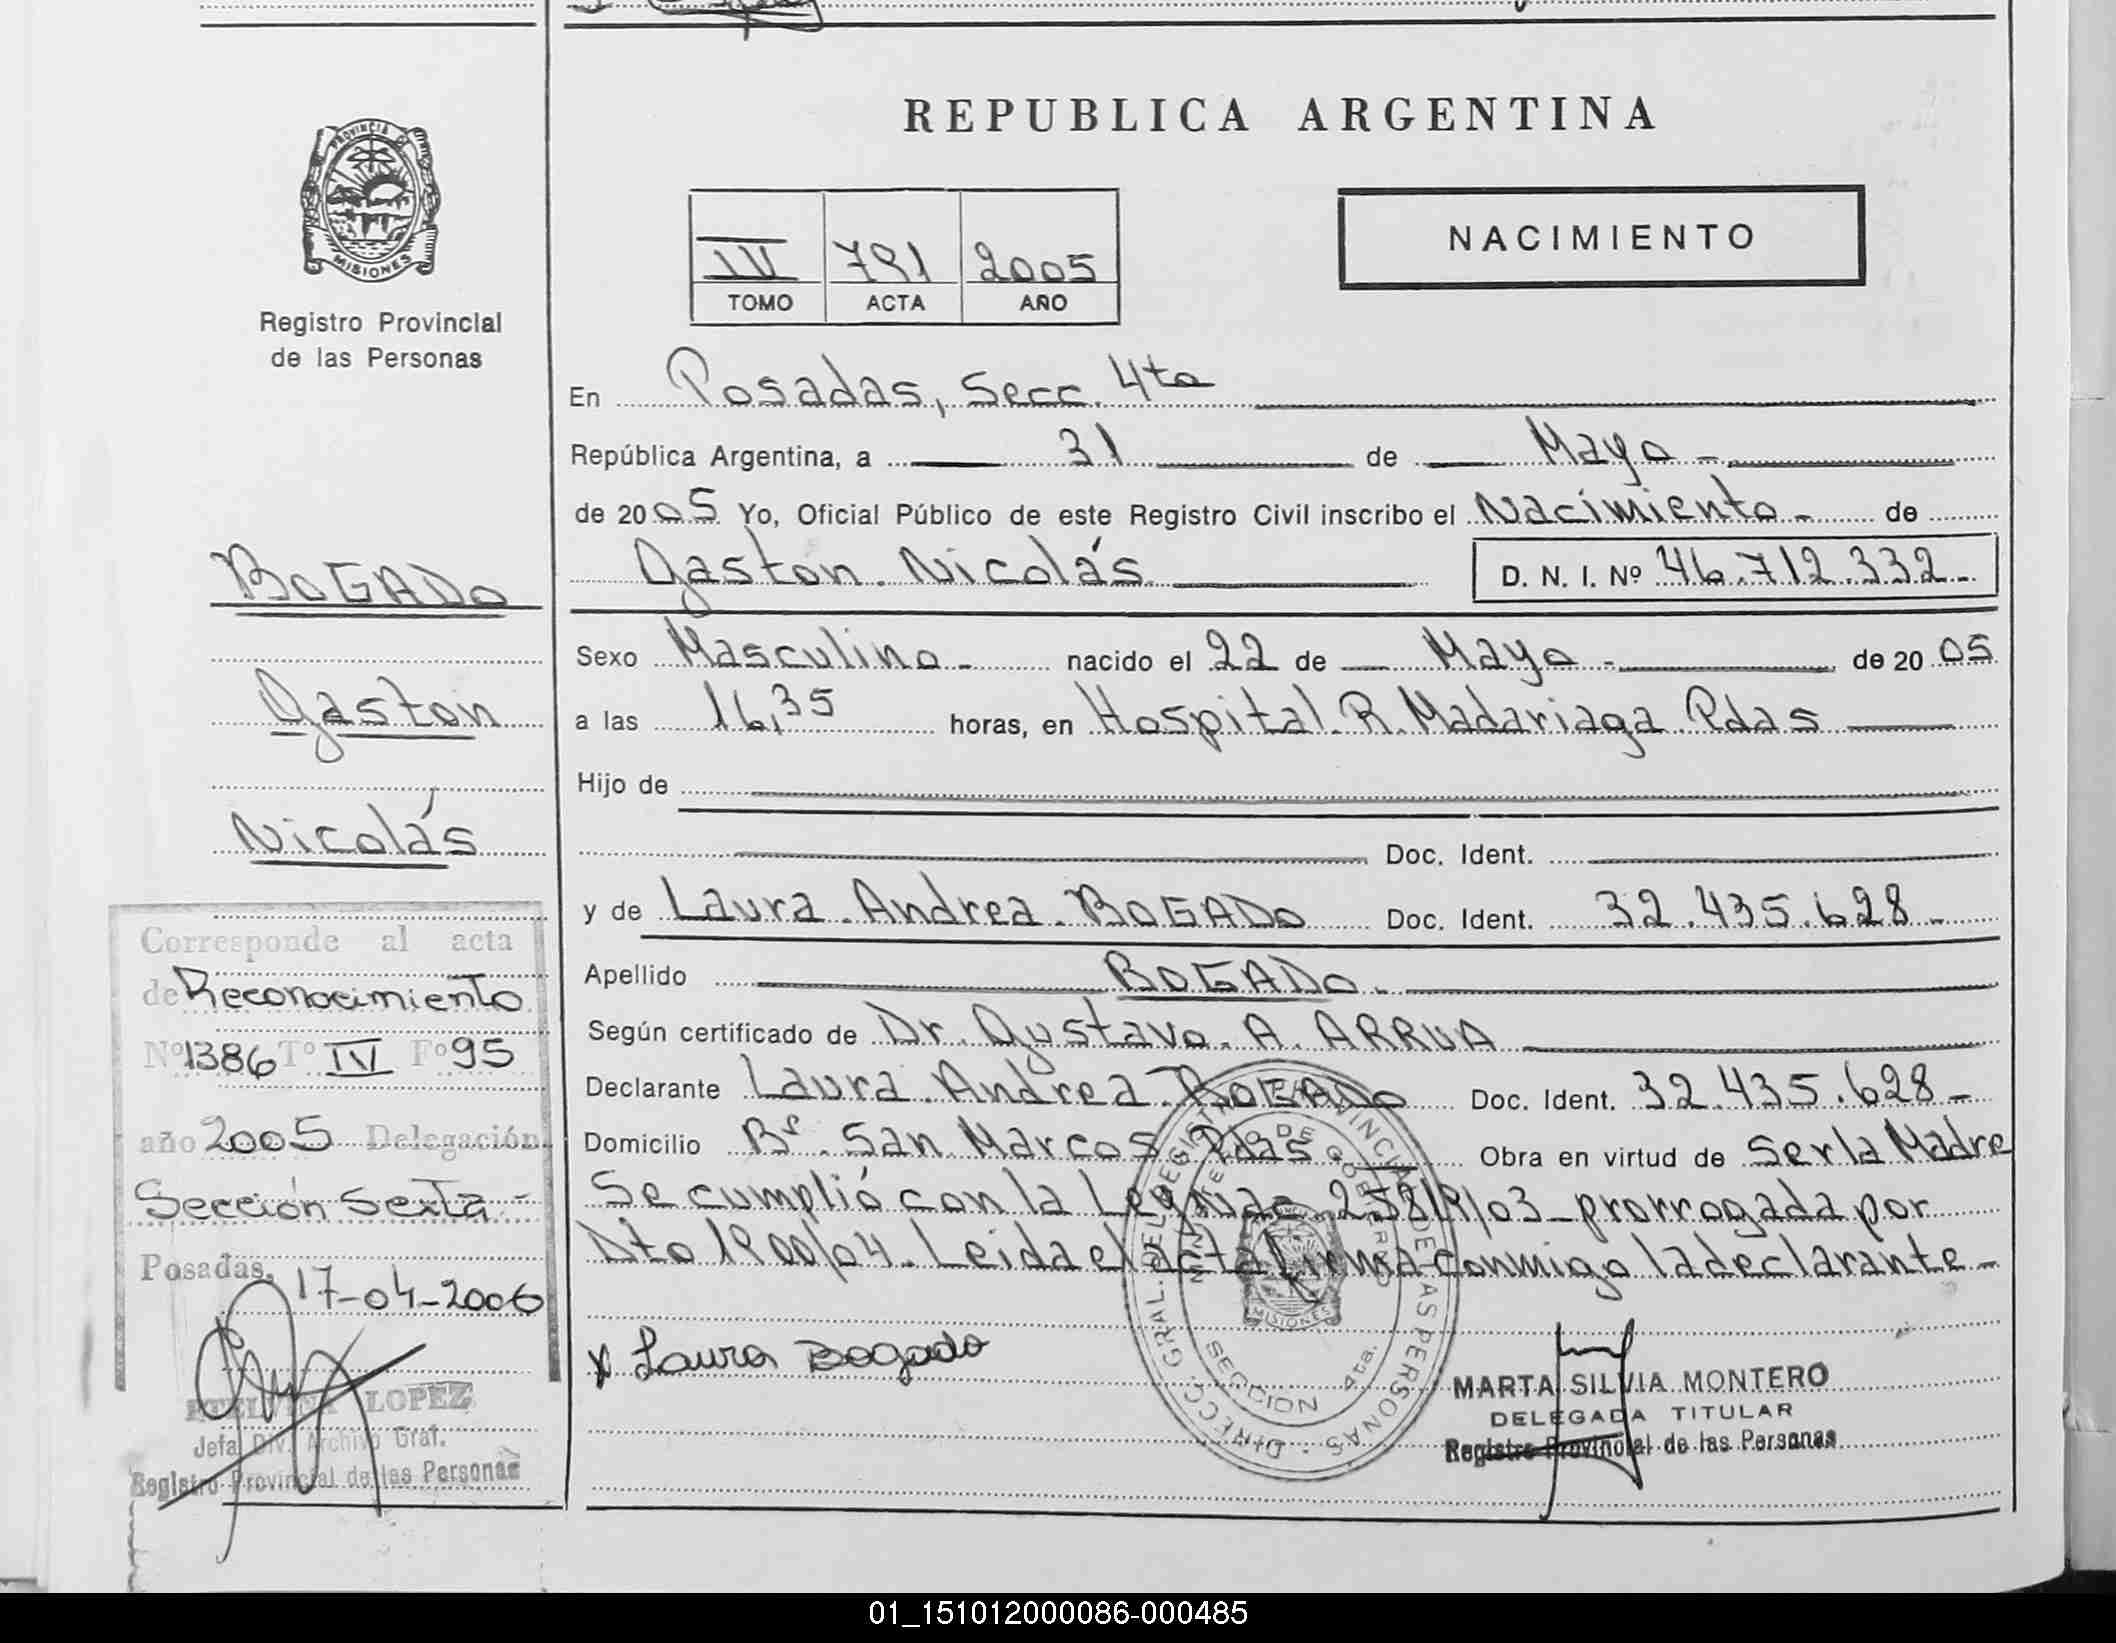 REPUBLICA ARGENTINA
PROVINCIA DE
MISIONES
Registro Provincial
de las Personas
NACIMIENTO
IV 791 2005
TOMO ACTA AÑO
En Posadas, Secc. 4ta
República Argentina, a 31 de Mayo -
de 2005 Yo, Oficial Público de este Registro Civil inscribo el Nacimiento - de
Gaston Nicolás D. N. I. Nº 46.712.332-
Sexo Masculino - nacido el 22 de Mayo - de 2005
a las 16,35 horas, en Hospital R. Madariaga Pdas
Hijo de
Doc. Ident.
y de Laura Andrea BOGADO Doc. Ident. 32.435.628-
Apellido BOGADO -
Según certificado de Dr. Gustavo A. ARRUA
Declarante Laura Andrea BOGADO Doc. Ident. 32.435.628-
Domicilio Bº San Marcos Pdas. Obra en virtud de Ser la Madre
Se cumplió con la Ley Nac. 25819/03 - prorrogada por
Dto 1900/04. Leida el acta firma conmigo la declarante -
x Laura Bogado
DIRECC. GRAL. DEL REGISTRO PROVINCIAL DE LAS PERSONAS
MINISTERIO DE GOBIERNO
MISIONES
SECCION 4ta.
MARTA SILVIA MONTERO
DELEGADA TITULAR
Registro Provincial de las Personas
BOGADO
Gaston
Nicolás
Corresponde al acta
de Reconocimiento
Nº 1386 Tº IV Fº 95
año 2005 Delegación
Sección Sexta -
Posadas, 17-04-2006
ETELVINA LOPEZ
Jefa Div. Archivo Gral.
Registro Provincial de las Personas
01_151012000086-000485